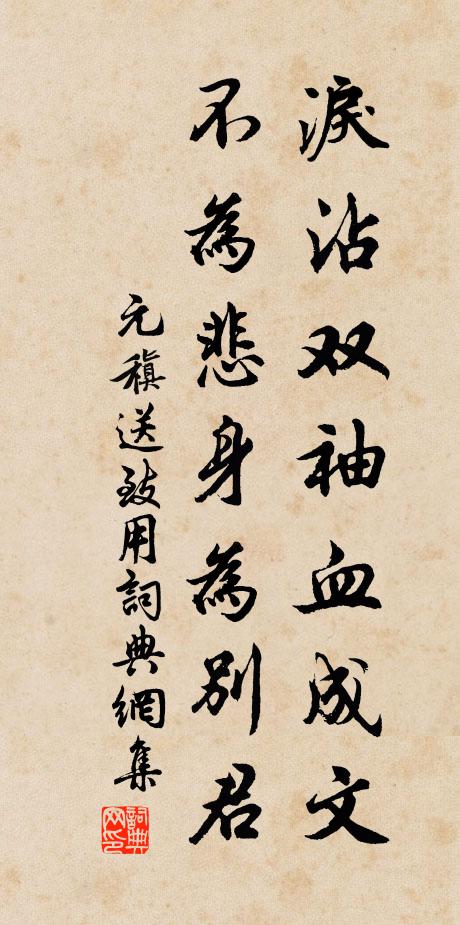 淚沾双袖血成文
不為悲身為別君
元稹送致用詞典網集
詞典网印